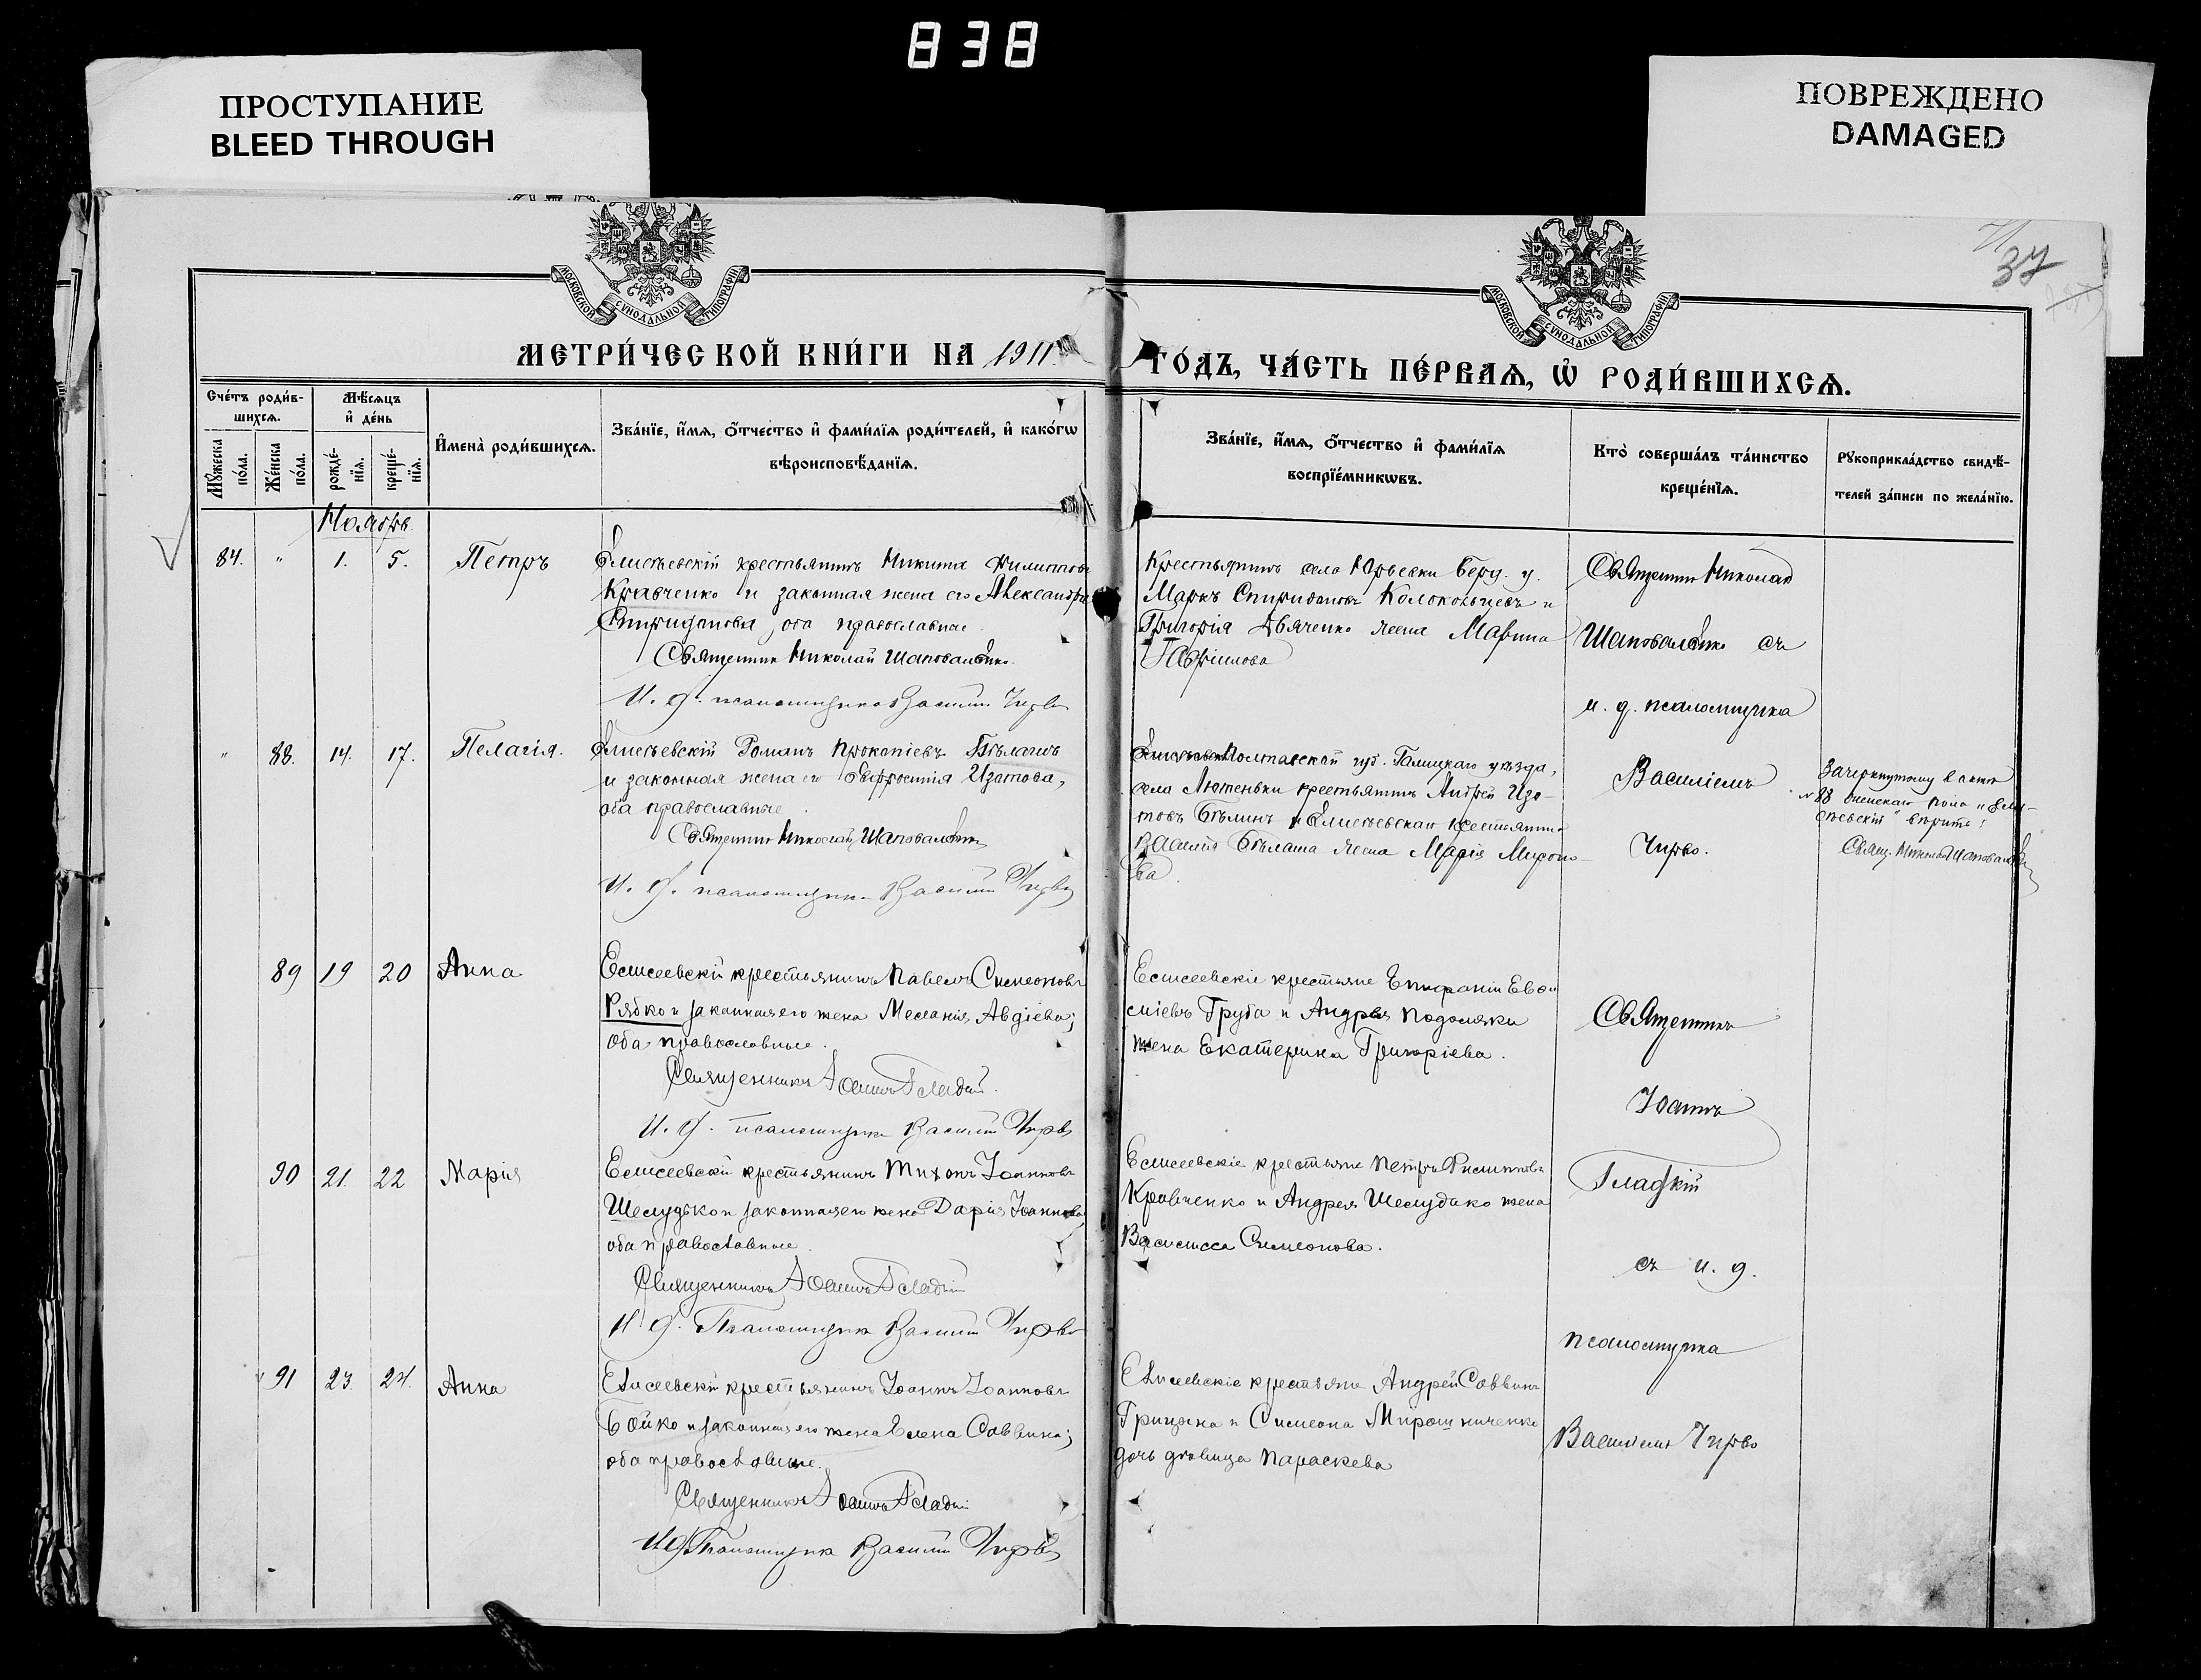 838
ПРОСТУПАНИЕ
BLEED THROUGH
ПОВРЕЖДЕНО
DAMAGED
37
МОСКОВСКОЙ СУНОДАЛЬНОЙ ТИПОГРАФІИ
МОСКОВСКОЙ СУНОДАЛЬНОЙ ТИПОГРАФІИ
МЕТРИ́ЧЕСКОЙ КНИ́ГИ НА 1911
ГО́ДЪ, ЧА́СТЬ ПЕ́РВАѦ, Ѡ҆ РОДИ́ВШИХСѦ.
Сче́тъ роди́в-
шихсѧ.
Мѣ́сѧцъ
и҆ де́нь
Мꙋ́жеска
по́ла.
Же́нска
по́ла.
рожде́-
нїѧ.
креще́-
нїѧ.
И҆мена̀ роди́вшихсѧ.
Зва́нїе, и҆́мѧ, ѻ҆́тчество и҆ фами́лїѧ роди́телей, и҆ како́гѡ
вѣроисповѣ́данїѧ.
Зва́нїе, и҆́мѧ, ѻ҆́тчество и҆ фами́лїѧ
воспрїе́мникѡвъ.
Кто̀ соверша́лъ та́инство
креще́нїѧ.
Рꙋкоприкла́дство свидѣ́-
телей за́писи по жела́нїю.
Ноябрь
84. " 1. 5. Петръ
Елисѣевскій крестьянинъ Никита Филиппов
Кравченко и законная жена его Александра
Спиридонова, оба православные
Священник Николай Шаповаленко.
И. д. псаломщика Василий Чирво
Крестьянинъ села Юрьевки Берд. у.
Маркъ Спиридоновъ Колокольцевъ и
Григорія Дьяченко жена Марина
Гавриилова
Священник Николай
Шаповаленко съ
и. д. псаломщика
" 88. 14. 17. Пелагія.
Елисѣевскій Романъ Прокопіевъ Бѣлашъ
и законная жена его Евфросинія Изотова,
оба православные.
Священник Николай Шаповаленко
И. д. псаломщика Василий Чирво
Полтавской губ. Гадицкаго уѣзда,
села Лютеньки крестьянинъ Андрей Изо-
товъ Бѣлинъ и Елисѣевскаго крестьянина
Василія Бѣлаша жена Марія Мирон
ва.
Василіемъ
Чирво.
Зачеркнутому в актѣ
№ 88 женскаго пола „Ели-
сѣевскій" вѣрить!
Свящ. Николай Шаповаленко
89 19 20 Анна
Елисеевскій крестьянинъ Павелъ Симеоновъ
Рябко и законная его жена Меланія Авдіева;
оба православные.
Священникъ Іоаннъ Гладкій.
И. д. псаломщика Василий Чирво
Елисеевскіе крестьяне Епифаній Евѳи
міевъ Груба и Андрея Подоляки
жена Екатерина Григоріева.
Священник
Іоаннъ
Гладкій
съ и. д.
псаломщика
Василіем Чирво
90 21 22 Марія
Елисеевскій крестьянинъ Тихонъ Іоанновъ
Шелудько и законная его жена Дарія Іоаннова;
оба православные.
Священникъ Іоаннъ Гладкій
И. д. Псаломщика Василий Чирво
Елисеевскіе крестьяне Петръ Филипповъ
Кравченко и Андрея Шелудько жена
Василисса Симеонова.
91 23. 24. Анна
Елисеевскій крестьянинъ Іоаннъ Іоанновъ
Бойко и законная его жена Елена Саввина;
оба православные.
Священникъ Іоаннъ Гладкій
И. д. Псаломщика Василий Чирво
Елисеевскіе крестьяне Андрей Саввинъ
Грицина и Симеона Мирошниченко
дочь дѣвица Параскева